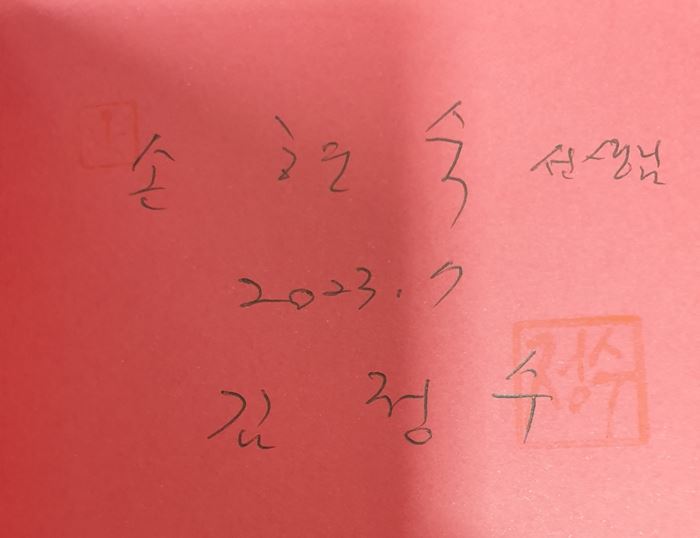 손 현숙 선생님
2023. 7
김 정 수
정수